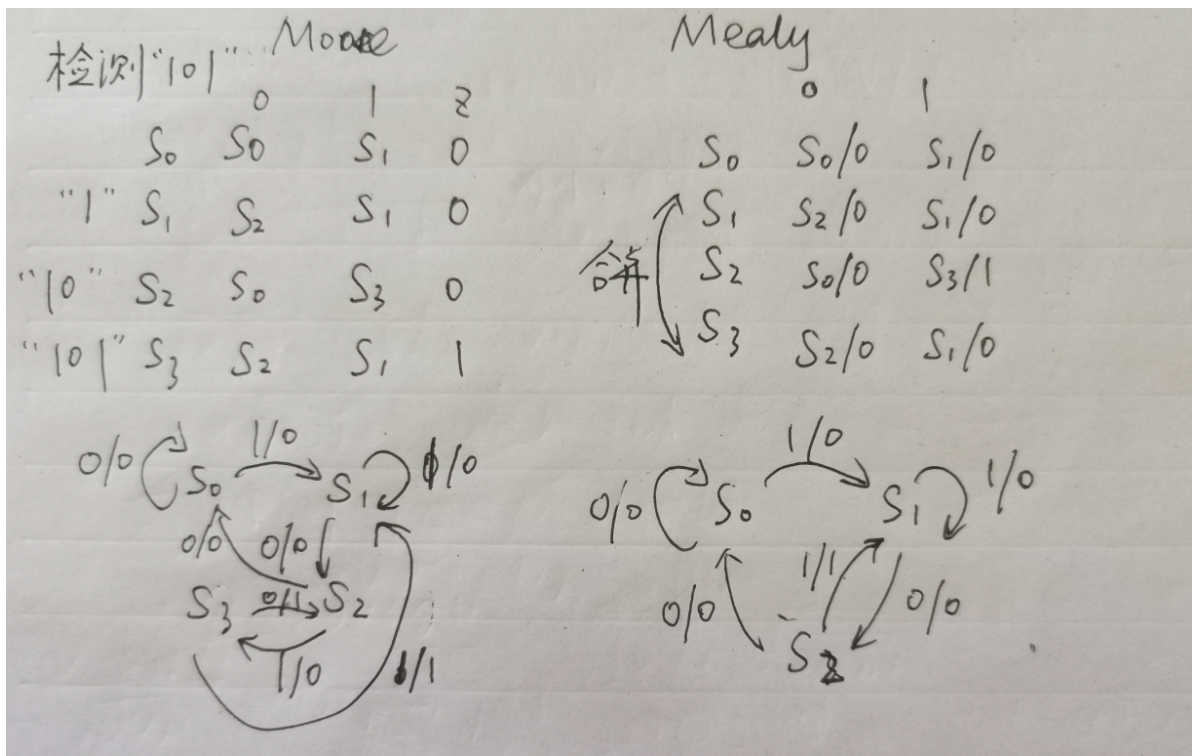 检测"101" Moore
0 1 z
S₀ S₀ S₁ 0
"1" S₁ S₂ S₁ 0
"10" S₂ S₀ S₃ 0
"101" S₃ S₂ S₁ 1
0/0 S₀ 1/0 S₁ 1/0
0/0 0/0
S₃ 0/1 S₂
1/0 1/1
Mealy
0 1
S₀ S₀/0 S₁/0
S₁ S₂/0 S₁/0
合并 S₂ S₀/0 S₃/1
S₃ S₂/0 S₁/0
1/0
0/0 S₀ S₁ 1/0
0/0 1/1 0/0
S₂